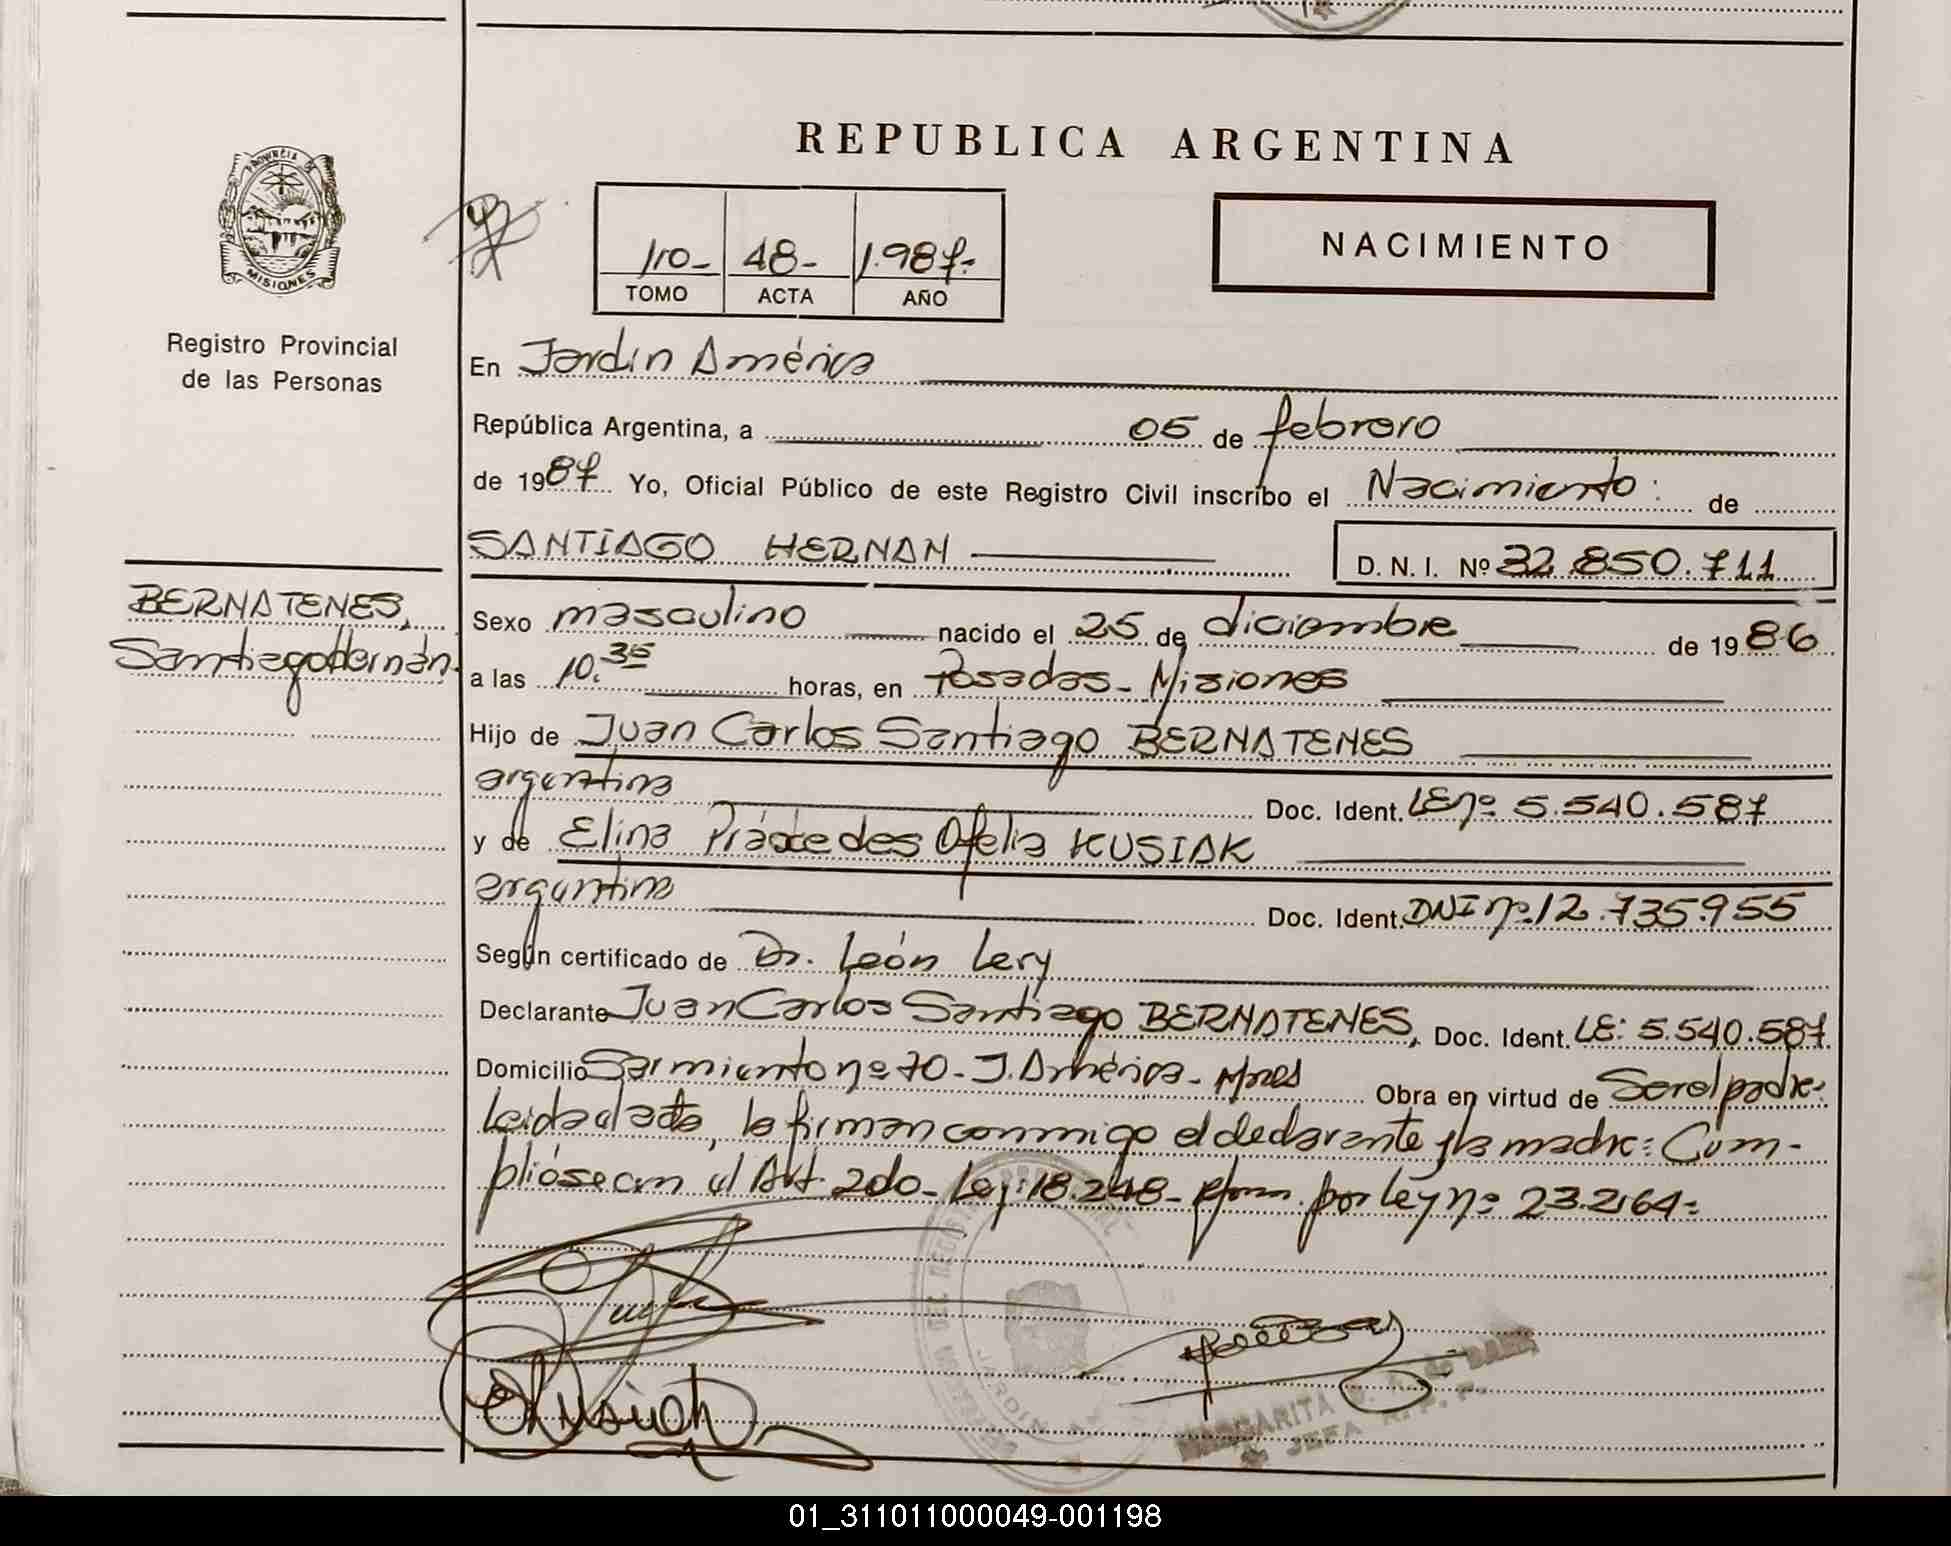 REPUBLICA ARGENTINA
PROVINCIA DE
MISIONES
Registro Provincial
de las Personas
110- 48- 1.987-
TOMO ACTA AÑO
NACIMIENTO
En Jardín América
República Argentina, a 05 de febrero
de 1987 Yo, Oficial Público de este Registro Civil inscribo el Nacimiento: de
SANTIAGO HERNAN D. N. I. Nº 32.850.711
BERNATENES,
Santiago Hernán.
Sexo masculino nacido el 25 de diciembre de 1986
a las 10.35 horas, en Posadas - Misiones
Hijo de Juan Carlos Santiago BERNATENES
argentina Doc. Ident. LE nº 5.540.587
y de Elina Práxedes Ofelia KUSIAK
argentina Doc. Ident. DNI nº 12.735.955
Según certificado de Dr. León Lery
Declarante Juan Carlos Santiago BERNATENES, Doc. Ident. LE: 5.540.587
Domicilio Sarmiento nº 70 - J. América - Mnes Obra en virtud de Ser el padre:
Leída el acta, la firman conmigo el declarante y la madre: Cum-
plióse con el Art. 2do - Ley: 18.248 - por ley nº 23.264:
MARGARITA
JEFA R. P. P.
01_311011000049-001198